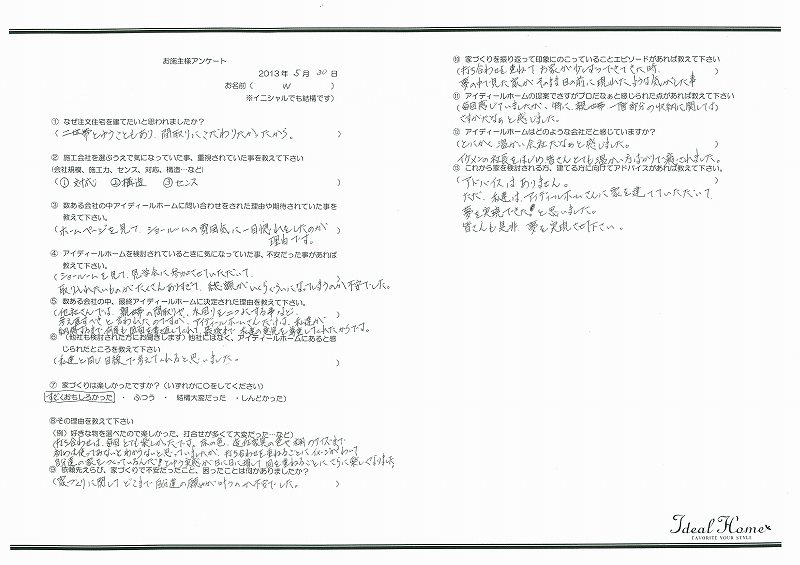 お施主様アンケート
2013年 5月 30日
お名前（ W ）
※イニシャルでも結構です）
① なぜ注文住宅を建てたいと思われましたか？
（二世帯ということもあり、間取りにこだわりたかったから。）
② 施工会社を選ぶうえで気になっていた事、重視されていた事を教えて下さい
(会社規模、施工力、センス、対応、構造…など)
（① 対応 ②構造 ③センス ）
③ 数ある会社の中アイディールホームに問い合わせをされた理由や期待されていた事を
教えて下さい。
（ホームページを見て、ショールームの雰囲気に一目惚れをしたのが
理由です。）
④ アイディールホームを検討されているときに気になっていた事、不安だった事があれば
教えて下さい。
（ショールームを見て、見学会に参加させていただいて、
取り入れたいものがたくさんありすぎて、総額がいくらくらいになってしまうのか不安でした。
⑤ 数ある会社の中、最終アイディールホームに決定された理由を教えて下さい。
（他社さんでは、親世帯の間取りや、水回りを二つにする事など、
アイディールホームさんだけは、私達が
納得するまで何度も図面を書き直してくれて、最後まで私達の意見を尊重してくれたからです。
⑥ （他社も検討された方にお聞きします）他社にはなく、アイディールホームにあると感
じられたところを教えて下さい
（私達と同じ目線で考えてくれると思いました。 ）
⑦ 家づくりは楽しかったですか？（いずれかに○をしてください）
すごくおもしろかった ・ ふつう ・ 結構大変だった ・しんどかった）
⑧その理由を教えて下さい
（例）好きな物を選べたので楽しかった、打合せが多くて大変だった…など）
（打ち合わせは、毎回とても楽しかったです。床の色、造作家具の色や、タイルのサイズまで
打ち合わせを重ねるごとにイメージがわいて
自分達の家をつくっているんだ!!という実感が日に日に増して 回を重ねるごとにさらに楽しくなりました
⑨ 依頼先えらび、家づくりで不安だったこと、困ったことは何かありましたか？
（家づくりに関して どこまで自分達の願いが叶うのか不安でした。 ）
⑩ 家づくりを振り返って印象にのこっていることエピソードがあれば教えて下さい
（打ち合わせを重ねて お家が少しずつできてきた時、 ）
夢の中で見た家が そのまま目の前に現れたような気がした事
⑪ アイディールホームの提案でさすがプロだなぁと感じられた点があれば教えて下さい
（毎回感じていましたが、特に、親世帯一階部分の収納に関しては）
さすがだなぁと感じました。
⑫ アイディールホームはどのような会社だと感じていますか？
（とにかく温かい会社だなぁと感じました。 ）
イケメンの社長をはじめ 皆さんとても温かい方ばかりで癒されました。
⑬ これから家を検討される方、建てる方に向けてアドバイスがあれば教えて下さい
（アドバイスはありません。 ）
ただ、私達は、アイディールホームさんに家を建てていただいて、
夢を実現できた!!と思いました。
皆さんも是非 夢を実現させて下さい。
Ideal Home
FAVORITE YOUR STYLE